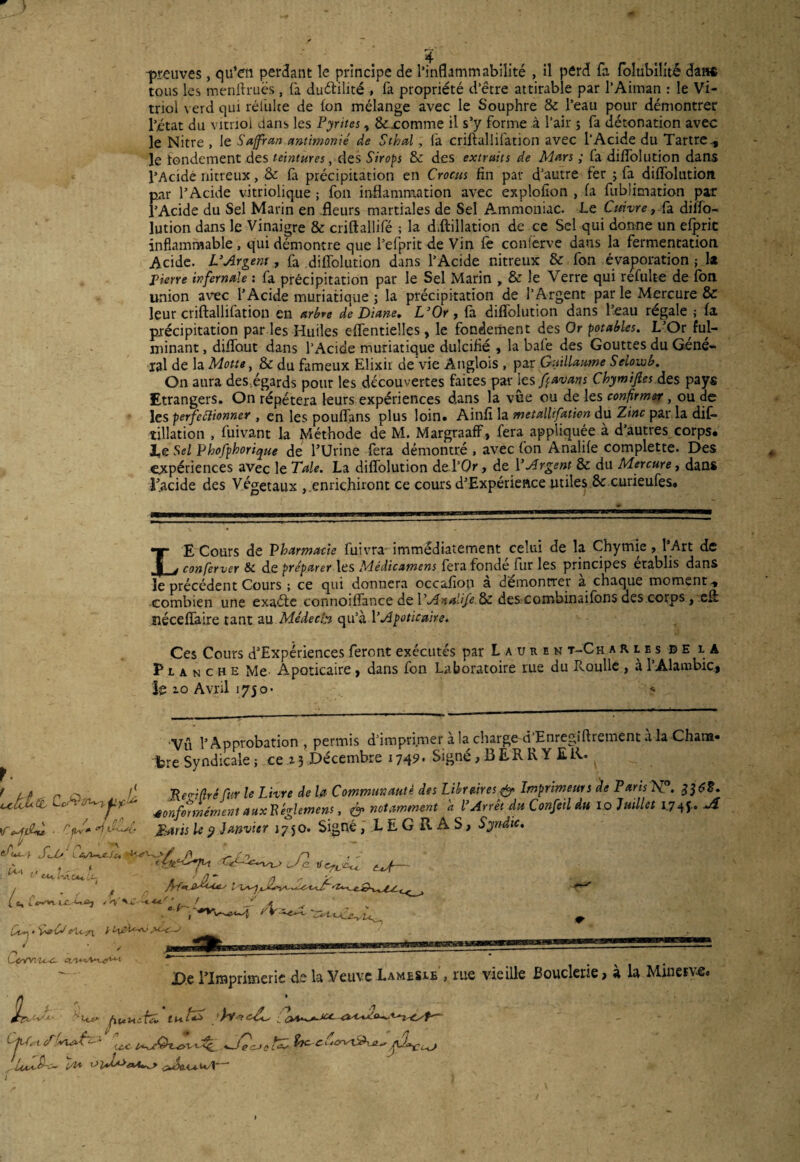 4
preuves, qu'en perdant le principe de l'inflammabilité, il perd sa solubilité dans
tous les menstrues, sa ductilité, sa propriété d'être attirable par l'Aiman : le Vi-
triol verd qui résulte de son mélange avec le Souphre & l'eau pour démontrer
l'état du vitriol dans les Pyrites, & comme il s'y forme à l'air ; sa détonation avec
le Nitre, le Saffran antimonié de Sthal, sa cristallisation avec l'Acide du Tartre,
le fondement des teintures, des Sirops & des extraits de Mars ; sa dissolution dans
l'Acide nitreux, & sa précipitation en Crocus fin par d'autre fer ; sa dissolution
par l'Acide vitriolique ; son inflammation avec explosion, sa sublimation par
l'Acide du Sel Marin en fleurs martiales de Sel Ammoniac. Le Cuivre, sa disso-
lution dans le Vinaigre & cristallisé ; la distillation de ce Sel qui donne un esprit
inflammable, qui démontre que l'esprit de Vin se conserve dans la fermentation
Acide. L'Argent, sa dissolution dans l'Acide nitreux & son évaporation ; la
Pierre infernale : sa précipitation par le Sel Marin, & le Verre qui résulte de son
union avec l'Acide muriatique ; la précipitation de l'Argent par le Mercure &
leur cristallisation en arbre de Diane. L'Or, sa dissolution dans l'eau régale ; sa
précipitation par les Huiles essentielles, le fondement des Or potables. L'Or ful-
minant, dissout dans l'Acide muriatique dulcifié, la base des Gouttes du Géné-
ral de la Motte, & du fameux Elixir de vie Anglois, par Guillaume Selowb.
On aura des égards pour les découvertes faites par les sçavans Chymistes des pays
Etrangers. On répétera leurs expériences dans la vûe ou de les confirmer, ou de
les perfectionner, en les poussans plus loin. Ainsi la metallisation du Zinc par la dis-
tillation, suivant la Méthode de M. Margraaff, sera appliquée à d'autres corps.
Le Sel Phosphorique de l'Urine sera démontré, avec son Analise complette. Des
expériences avec le Talc. La dissolution de l'Or, de l'Argent & du Mercure, dans
l'acide des Végetaux, enrichiront ce cours d'Expérience utiles & curieuses.
LE Cours de Pharmacie suivra immédiatement celui de la Chymie, l'Art de
conserver & de préparer les Médicamens sera fondé sur les principes établis dans
le précédent Cours ; ce qui donnera occasion à démontrer à chaque moment,
combien une exacte connoissance de l'Analise & des combinaisons des corps, est
nécessaire tant au Médecin qu'à l'Apoticaire.
Ces Cours d'Expériences seront exécutés par LAURENT-CHARLES DE LA
PLANCHE Me. Apoticaire, dans son Laboratoire rue du Roulle, à l'Alambic,
le 20 Avril 1750.
Vû l'Approbation, permis d'imprimer à la charge d'Enregistrement à la Cham-
bre Syndicale ; ce 23 Décembre 1749. Signé, BERRYER.
Registré sur le Livre de la Communauté des Libraires & Imprimeurs de Paris N°. 3368.
conformément aux Réglemens, & notamment à l'Arrêt du Conseil du 10 Juillet 1745. A
Paris le 9 Janvier 1750. Signé, LEGRAS, Syndic.
De l'Imprimerie de la Veuve LAMESLE, rue vieille Bouclerie, à la Minerve.